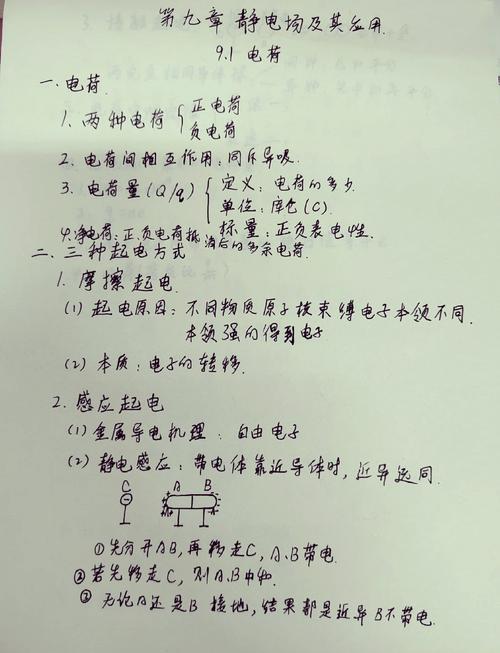 第九章 静电场及其应用
9.1 电荷
一.电荷
1. 两种电荷 { 正电荷
负电荷
2. 电荷间相互作用:同斥异吸.
3. 电荷量(Q/q) { 定义:电荷的多少.
单位:库仑(C).
标量:正负表电性.
4.净电荷:正.负电荷抵消后的多余电荷.
二.三种起电方式
1. 摩擦起电.
(1) 起电原因:不同物质原子核束缚电子本领不同.
本领强的得到电子
(2) 本质:电子的转移.
2. 感应起电
(1) 金属导电机理:自由电子
(2) 静电感应:带电体靠近导体时,近异远同.
C A B
①先分开AB,再移走C,A.B带电.
②若先移走C,则A.B中和.
③ 无论A还是B接地,结果都是近异B不带电.